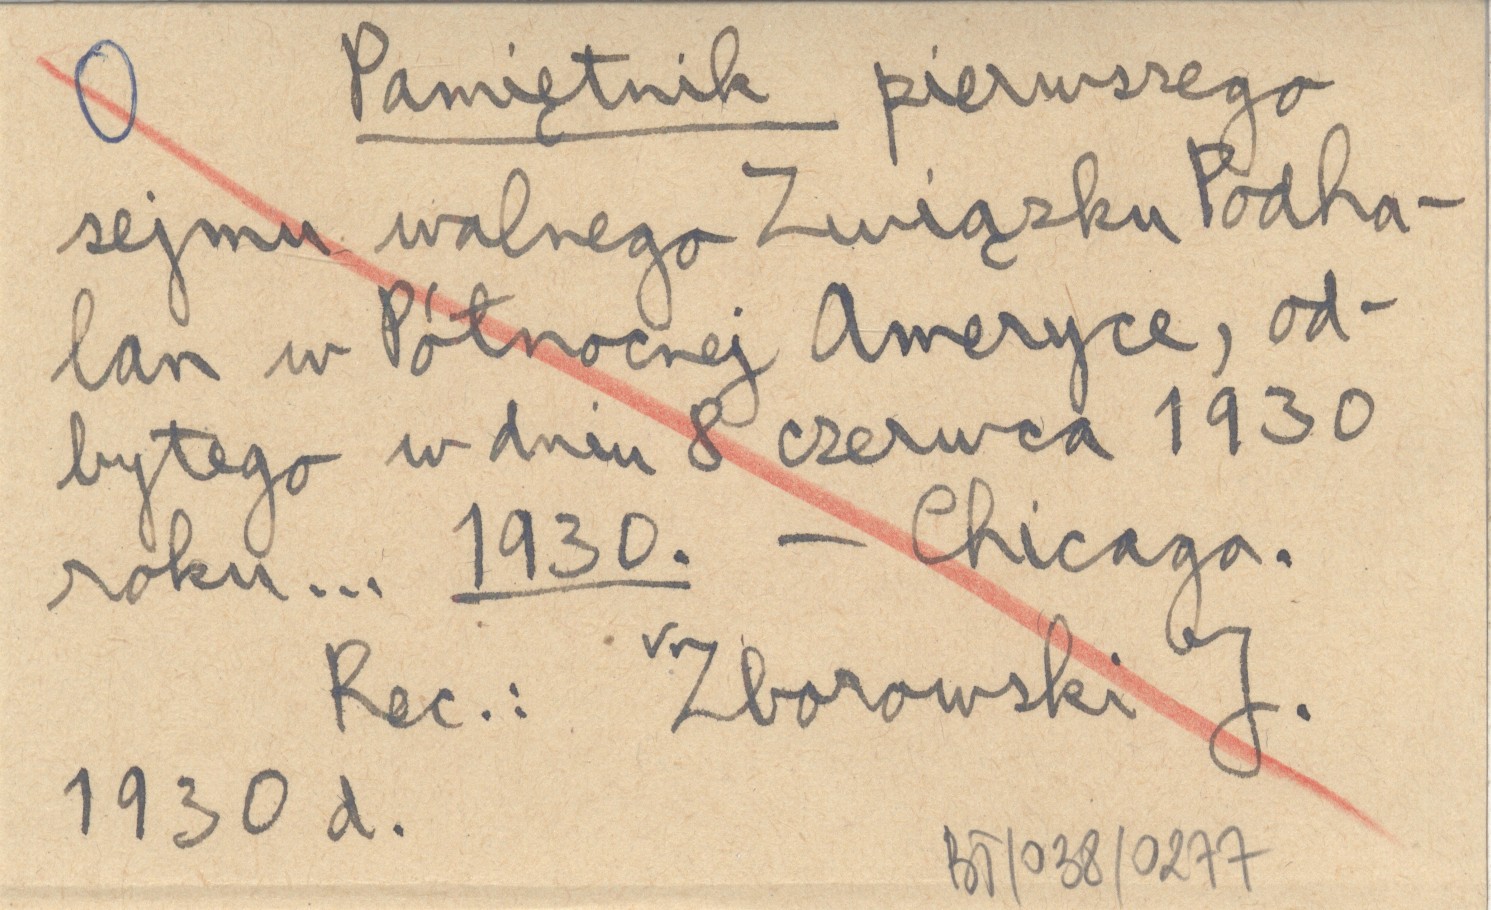 Pamiętnik pierwszego
sejmu walnego Związku Podha-
lan w Północnej Ameryce, od-
bytego w dniu 8 czerwca 1930
roku... 1930. — Chicago.
Rec.: Zborowski J.
1930 d.
BT/038/0277